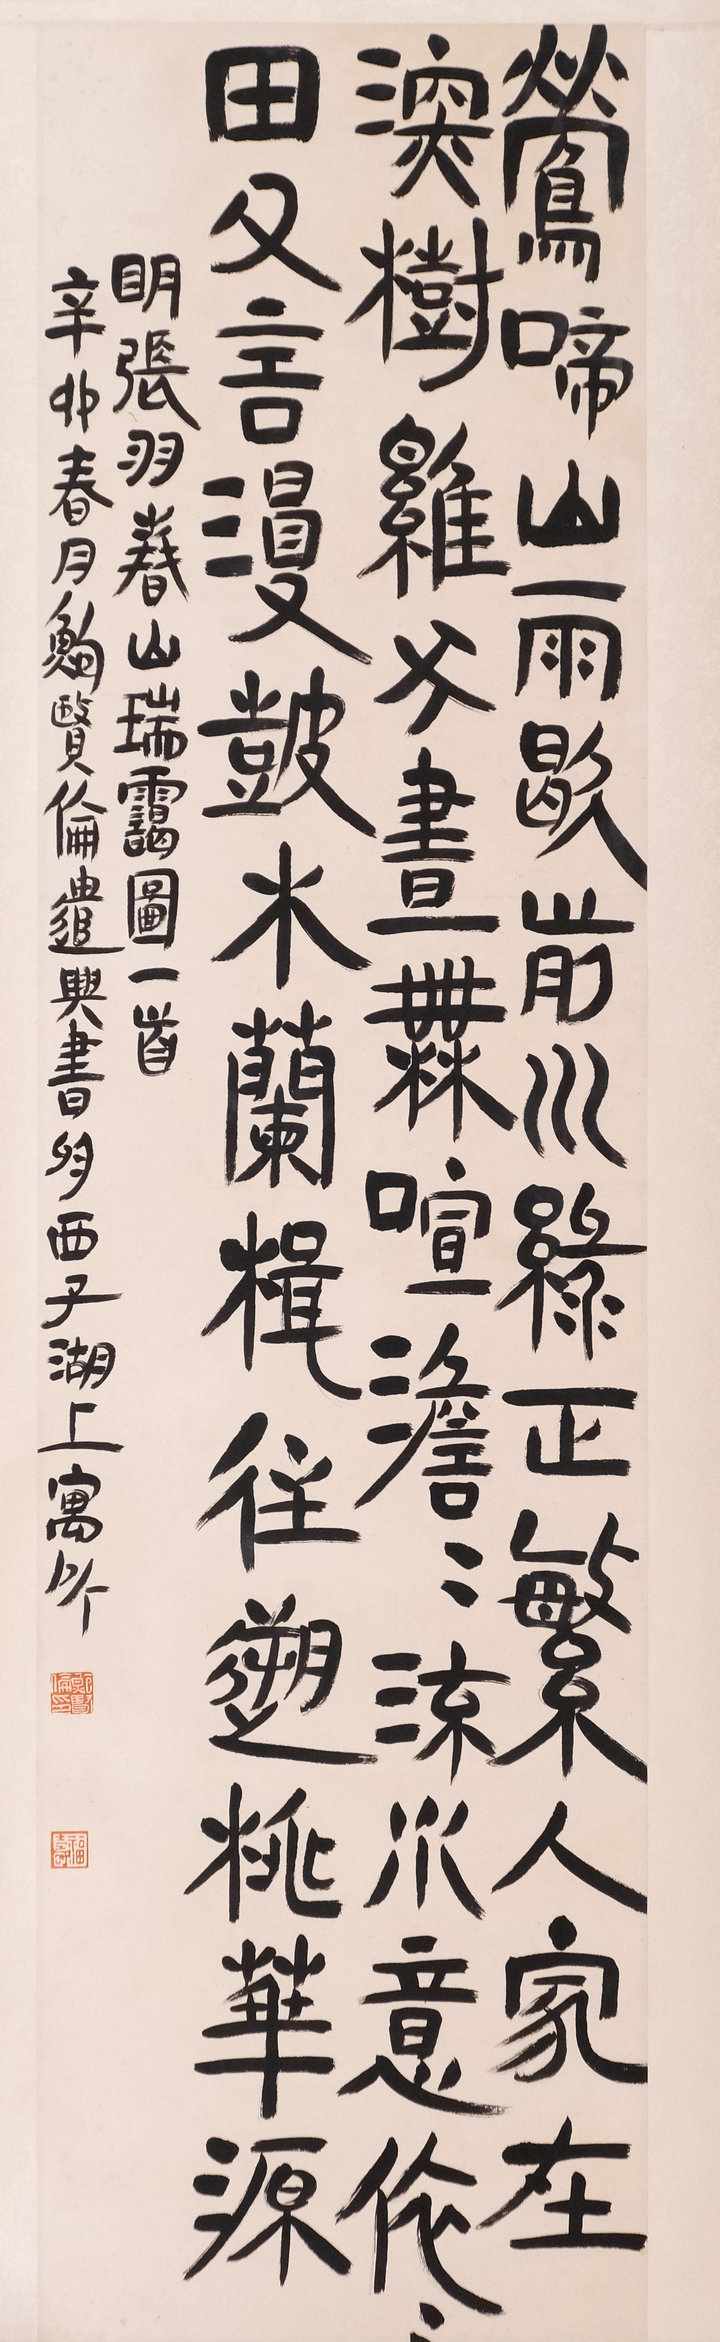 鶯啼山雨歇前川綠正繁人家在
深樹雞犬晝無喧澹〻流水意依〻
田父言漫鼓木蘭楫往遡桃華源
明張羽春山瑞靄圖一首
辛卯春月鮑賢倫遣興書於西子湖上寓所